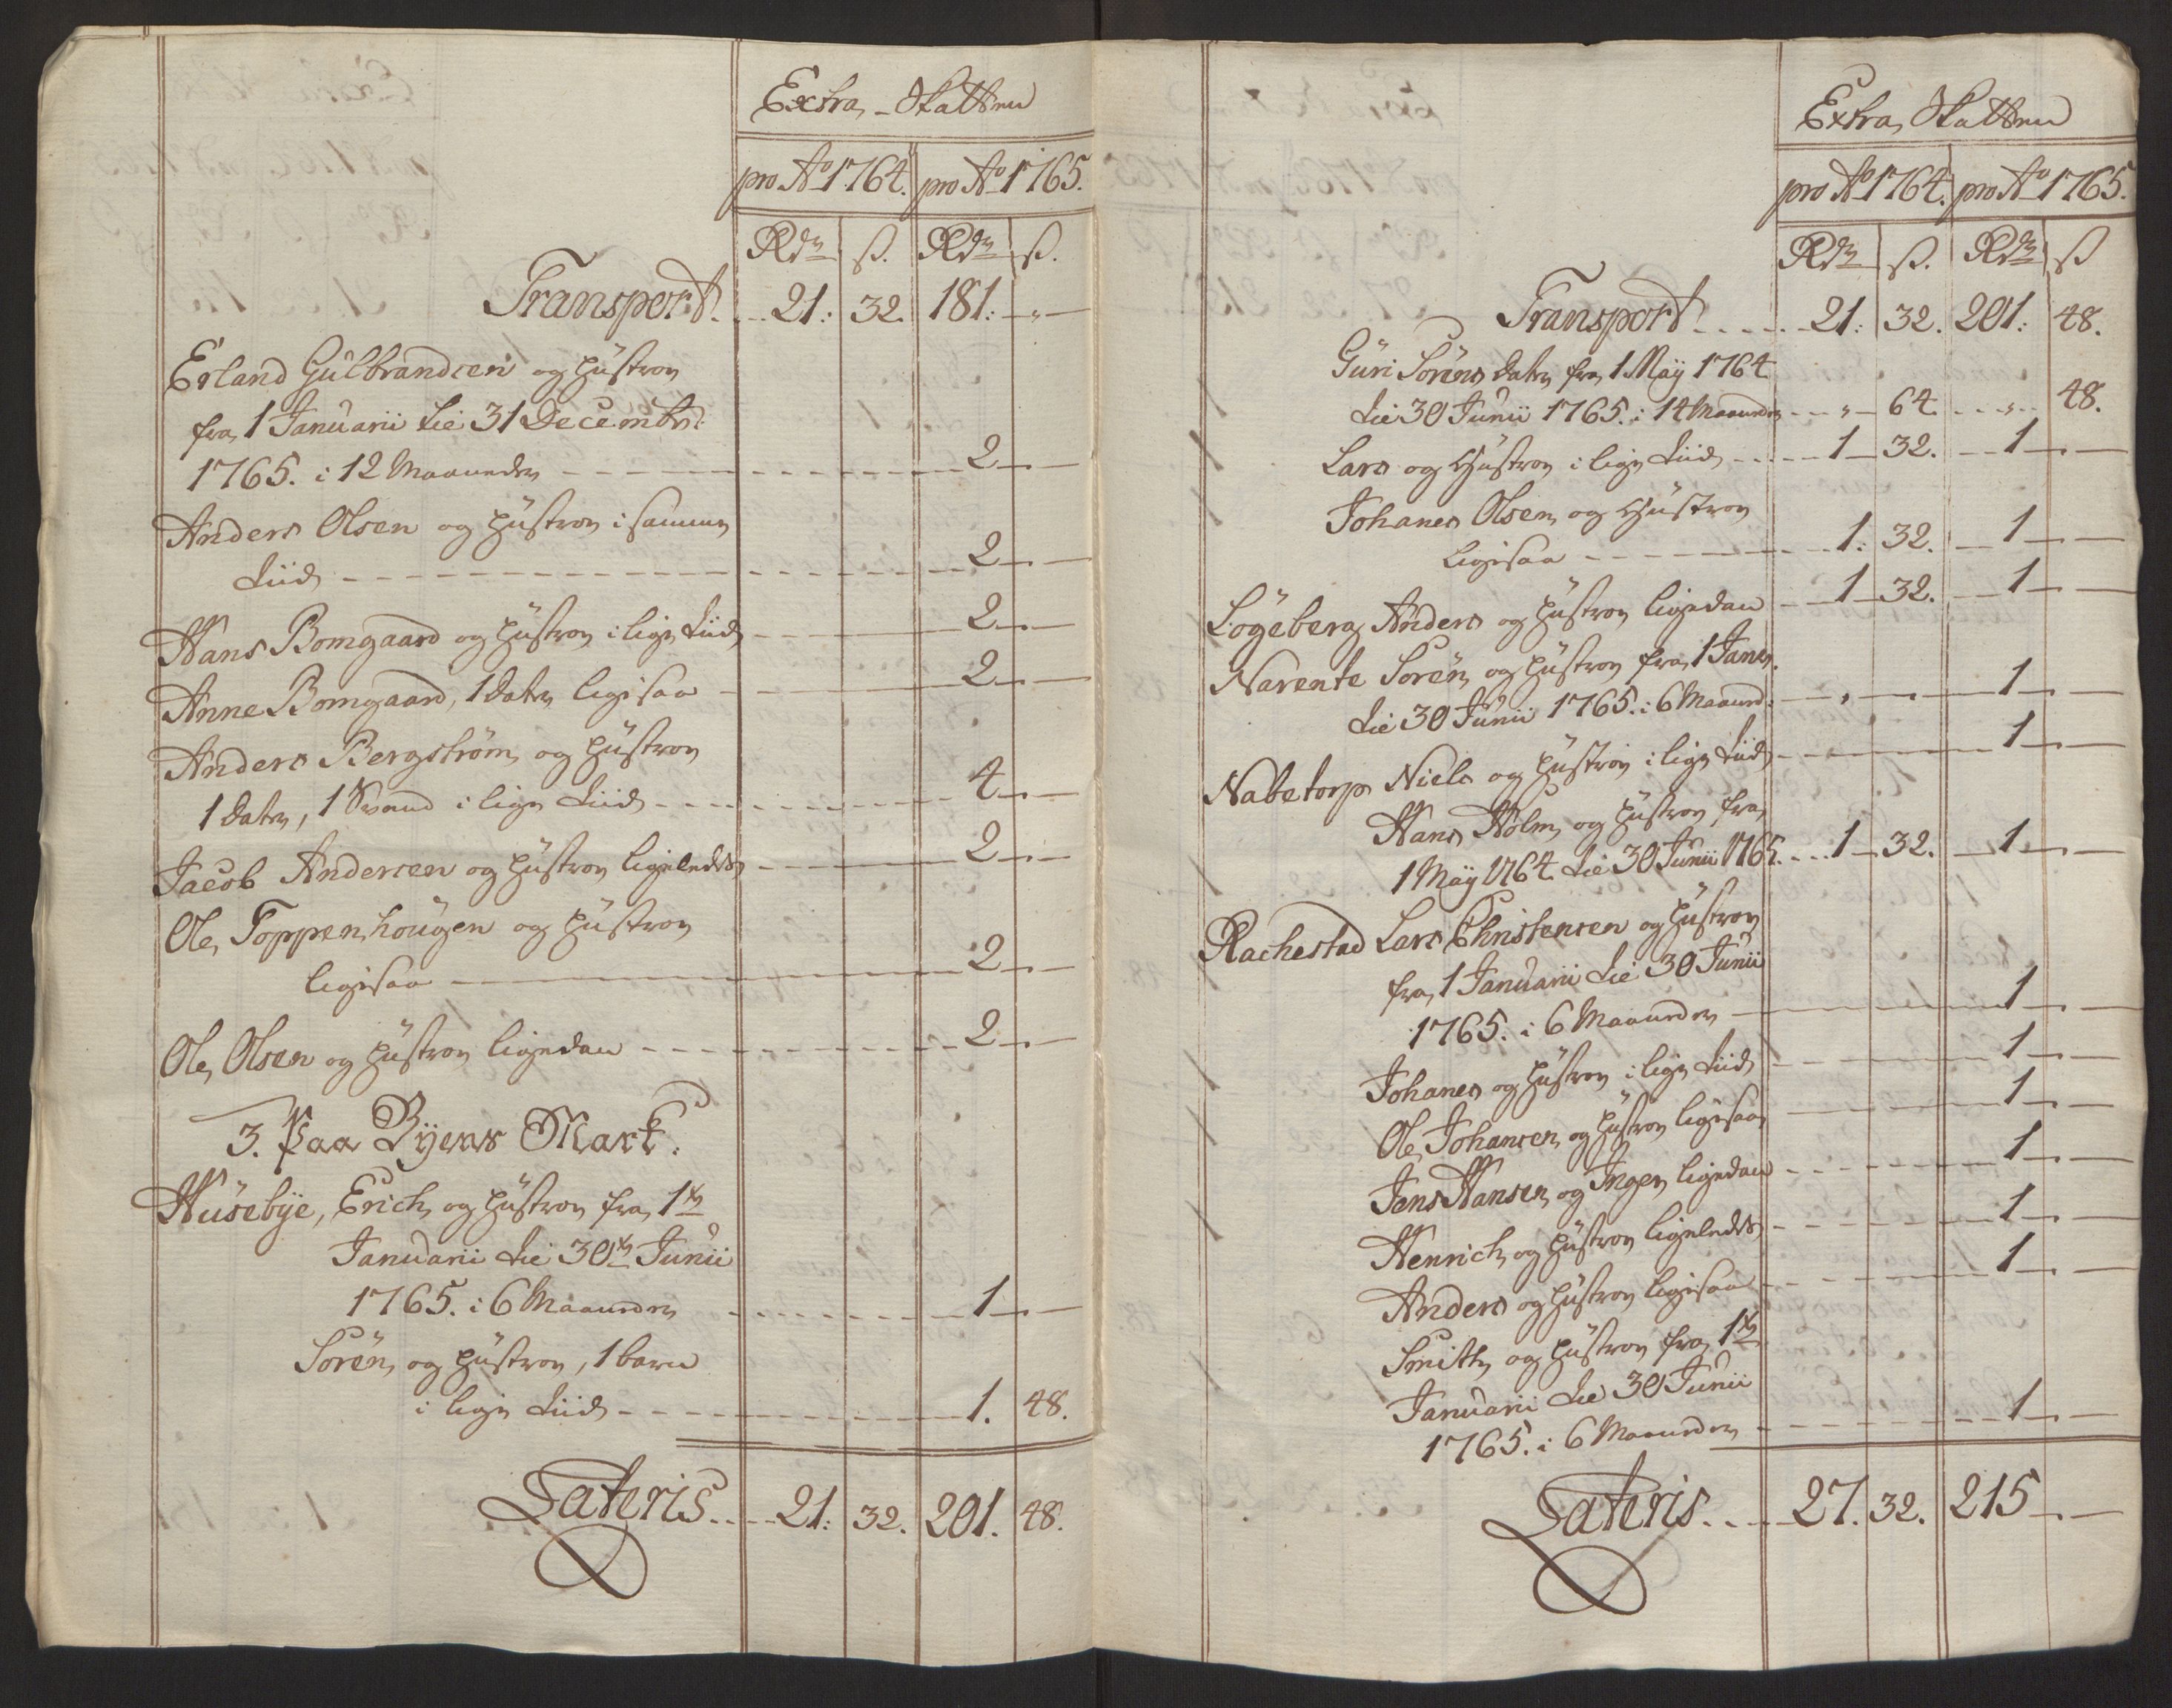 Extra Skatten
pro Ao 1764. pro Ao 1765.
Rdr ß. Rdr ß.
Transport 21: 32. 181: „
Erland Gulbrandsen og Hüstrou
fra 1 Januarii til 31 Decembr:
1765. i 12 Maaneder 2
Anders Olsen og Hüstrou i samme
Tiid 2
Hans Bomgaard og Hüstrou i lige Tiid 2
Anne Bomgaard, 1 Dater ligesaa 2
Anders Bergstrøm og Hüstrou
1 Dater, 1 Svend i lige Tiid 4
Jacob Andersen og Hüstrou ligeledes 2
Ole Toppenhougen og Hüstrou
ligesaa 2
Ole Olsen og Hüstrou ligedan 2
3. Paa Byens Mark.
Hüsebÿe, Erich og Hüstrou fra 1te
Januarii til 30te Junii
1765. i 6 Maaneder 1
Sören og Hüstrou, 1 barn
i lige Tiid 1. 48.
Lateris 21: 32. 201. 48.
Extra Skatten
pro Ao 1764. pro Ao 1765.
Rdr ß. Rdr ß
Transport 21: 32. 201: 48.
Güri Sörens Dater fra 1 Maÿ 1764
til 30 Junii 1765. i 14 Maaneder „ 64. „ 48.
Lars og Hüstrou i lige Tiid 1 32. 1
Johanes Olsen og Hüstrou
ligesaa 1: 32. 1
Lögeberg Anders og Hüstrou ligedan 1 32. 1
Narente Sören og Hüstrou fra 1 Janr.
til 30 Junii 1765. i 6 Maaned: „ 1
Nabetorp Niels og Hüstrou i lige Tiid 1
Hans Holm og Hüstrou fra
1 Maÿ 1764. til 30 Junii 1765. 1 32. 1
Rachestad Lars Christensen og Hüstrou
fra 1 Januarii til 30 Junii
1765. i 6 Maaneder 1
Johanes og Hüstrou i lige Tiid 1
Ole Johansen og Hüstrou ligesaa 1
Jens Hansen og Inger ligedan 1
Henrich og Hüstrou ligeledes 1
Anders og Hüstrou ligesaa 1
Smith og Hüstrou fra 1te
Januarii til 30 Junii
1765. i 6 Maaneder 1
Lateris 27. 32. 215